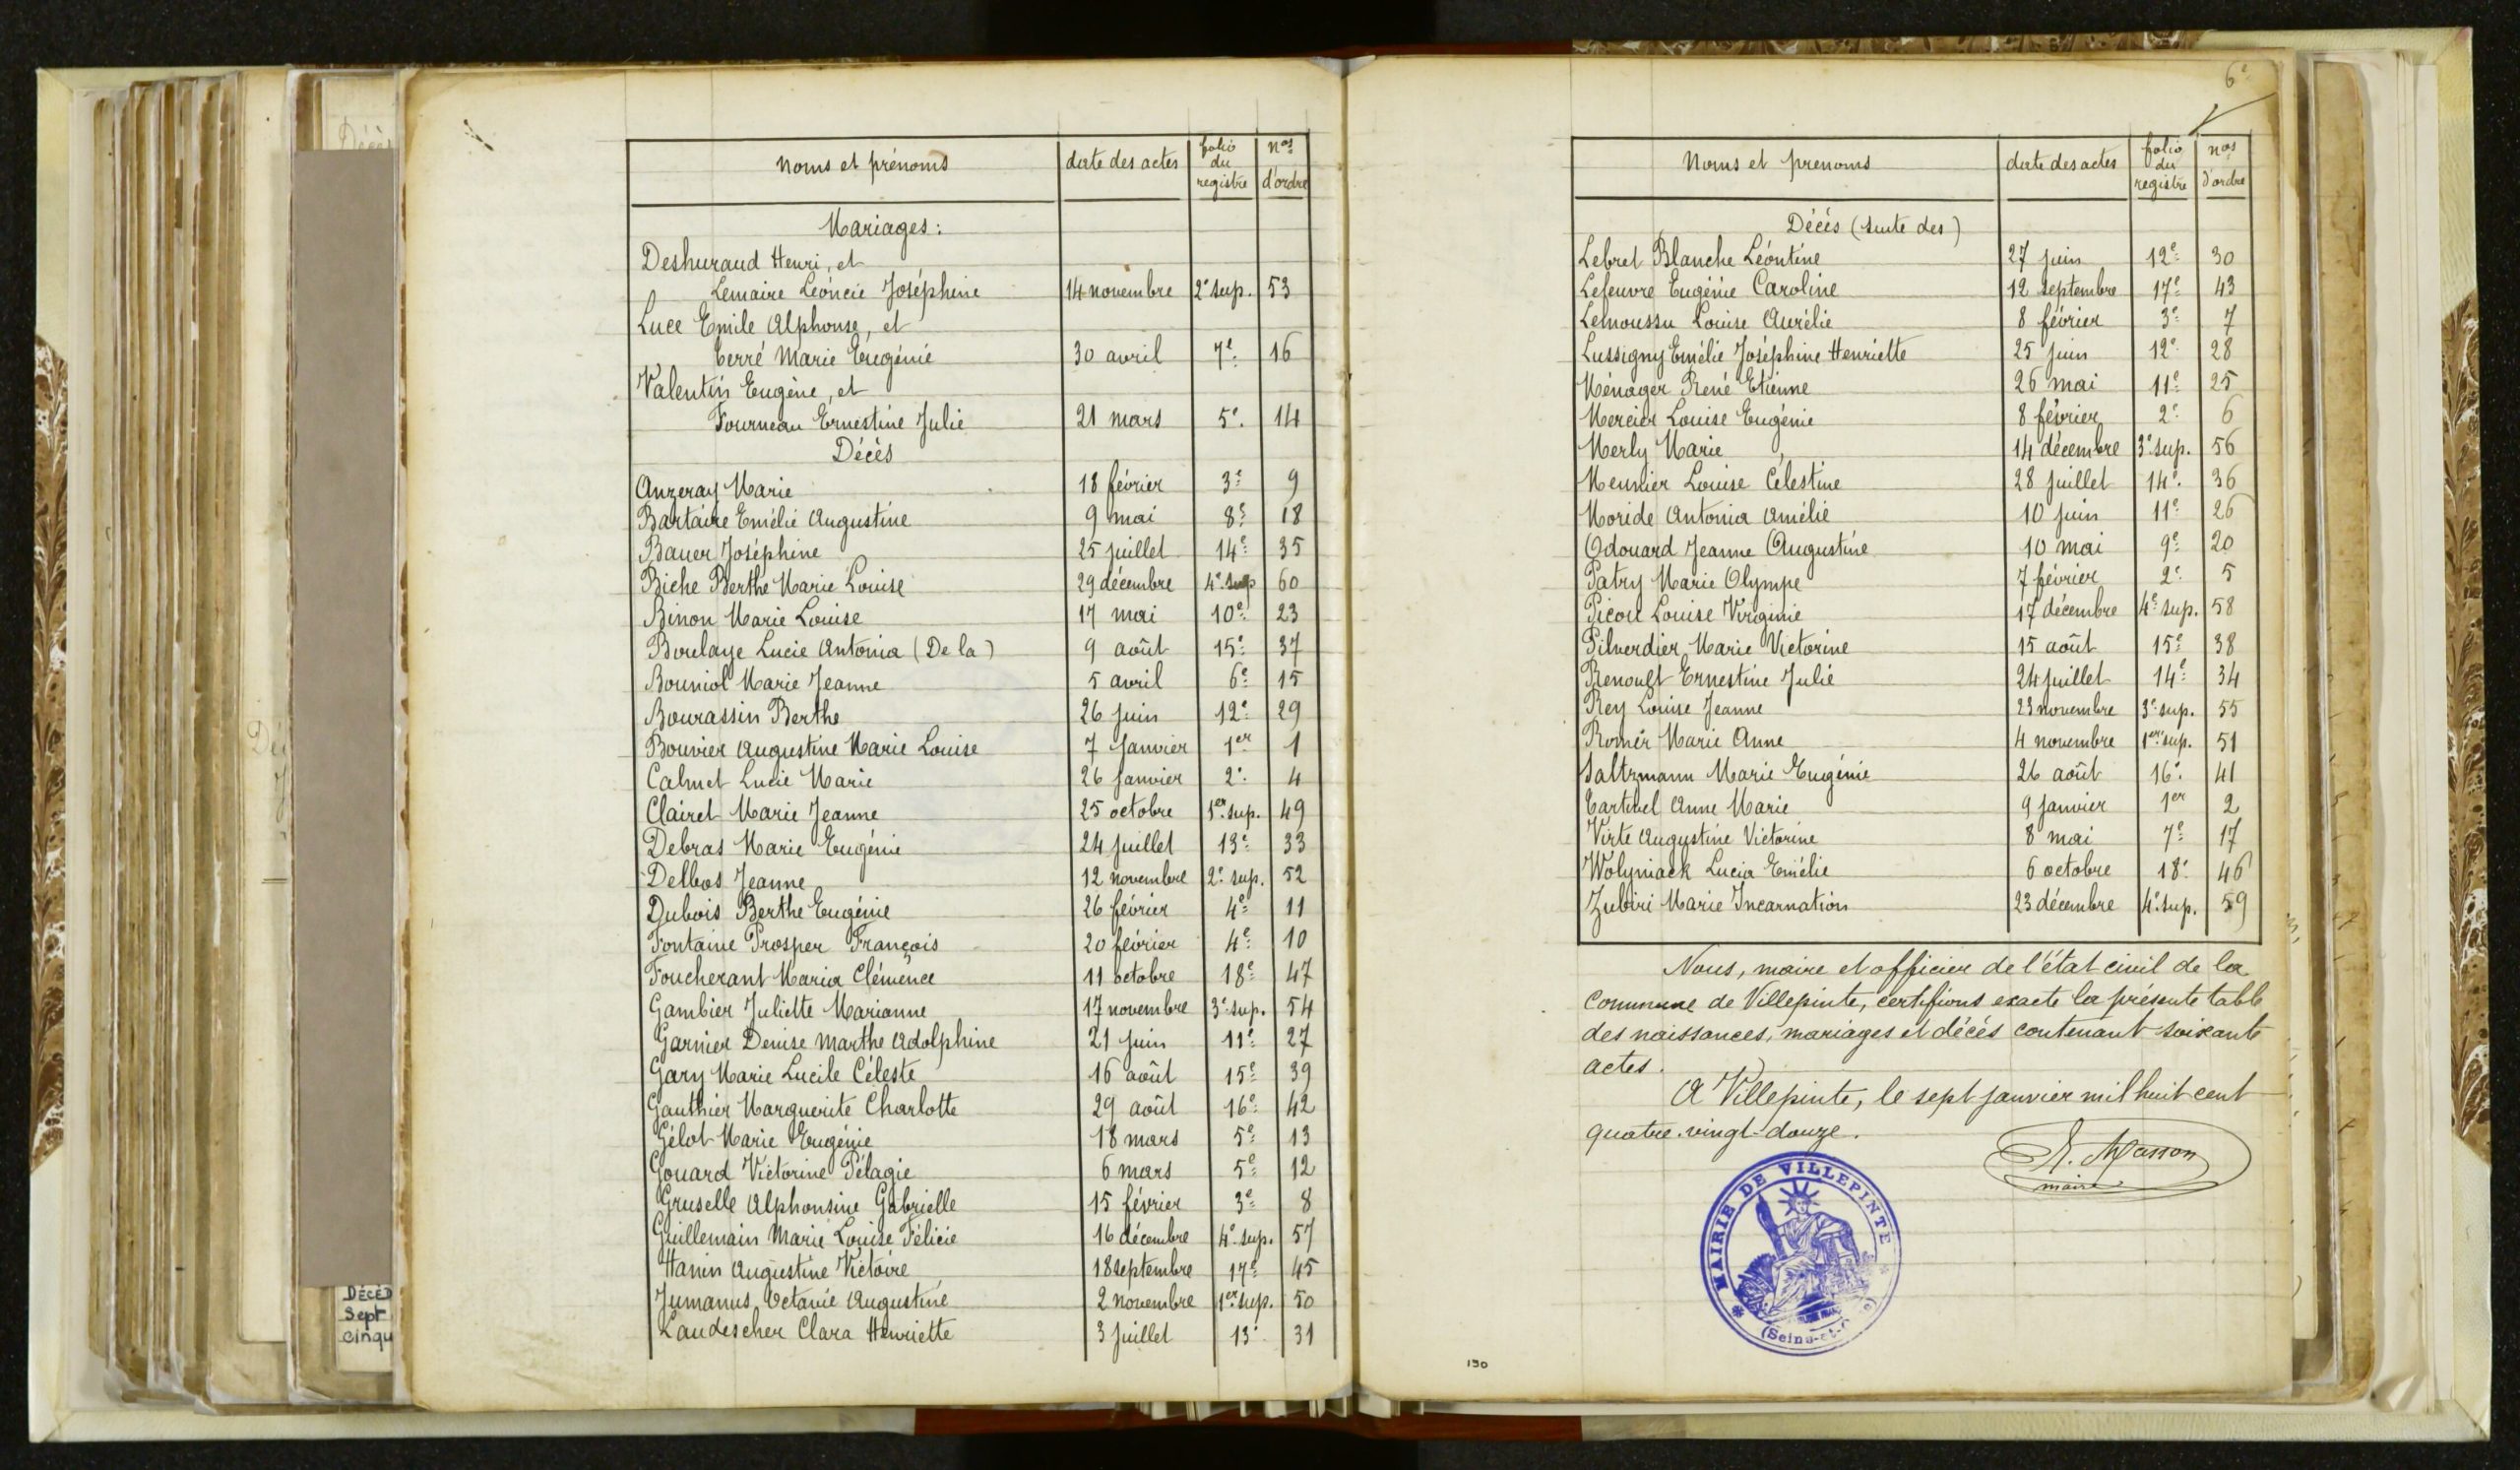 Noms et prénoms date des actes folio du registre nos d'ordre
Mariages:
Deshuraud Henri, et
Lemaire Léoncie Joséphine 14 novembre 2e sup. 53
Luce Emile Alphonse, et
Terré Marie Eugénie 30 avril 7e 16
Valentin Eugène, et
Fourneau Ernestine Julie 21 mars 5e 14
Décès
Anzeray Marie 18 février 3e 9
Bartaire Emélie Augustine 9 mai 8e 18
Bauer Joséphine 25 juillet 14e 35
Biche Berthe Marie Louise 29 décembre 4e sup 60
Binon Marie Louise 17 mai 10e 23
Boulaye Lucie Antonia (De la) 9 août 15e 37
Bouniol Marie Jeanne 5 avril 6e 15
Bourassin Berthe 26 juin 12e 29
Bouvier Augustine Marie Louise 7 janvier 1er 1
Calmet Lucie Marie 26 janvier 2e 4
Clairet Marie Jeanne 25 octobre 1er sup. 49
Debras Marie Eugénie 24 juillet 13e 33
Delbos Jeanne 12 novembre 2e sup. 52
Dubois Berthe Eugénie 26 février 4e 11
Fontaine Prosper François 20 février 4e 10
Foucherant Maria Clémence 11 octobre 18e 47
Gambier Juliette Marianne 17 novembre 3e sup. 54
Garnier Denise Marthe Adolphine 21 juin 11e 27
Gary Marie Lucile Céleste 16 août 15e 39
Gauthier Marguerite Charlotte 29 août 16e 42
Gélot Marie Eugénie 18 mars 5e 13
Gouard Victorine Pélagie 6 mars 5e 12
Gruselle Alphonsine Gabrielle 15 février 3e 8
Guillemain Marie Louise Félicie 16 décembre 4e sup. 57
Hanin Augustine Victoire 18 septembre 17e 45
Jumanus Octavie Augustine 2 novembre 1er sup. 50
Laudescher Clara Henriette 3 juillet 13e 31
DÉCÉD
Sept
cinqu
6e
Noms et prenoms date des actes folio du registre nos d'ordre
Décès (suite des)
Lebret Blanche Léontine 27 juin 12e 30
Lefeuvre Eugénie Caroline 12 septembre 17e 43
Lemoussu Louise Aurélie 8 février 3e 7
Lussigny Emélie Joséphine Henriette 25 juin 12e 28
Ménager René Etienne 26 mai 11e 25
Mercier Louise Eugénie 8 février 2e 6
Merly Marie 14 décembre 3e sup. 56
Meunier Louise Célestine 28 juillet 14e 36
Moride Antonia Amélie 10 juin 11e 26
Odouard Jeanne Augustine 10 mai 9e 20
Patry Marie Olympe 7 février 2e 5
Picou Louise Virginie 17 décembre 4e sup. 58
Pilverdier Marie Victorine 15 août 15e 38
Renoult Ernestine Julie 24 juillet 14e 34
Rey Louise Jeanne 23 novembre 3e sup. 55
Romér Marie Anne 4 novembre 1er sup. 51
Saltzmann Marie Eugénie 26 août 16e 41
Tartivel Anne Marie 9 janvier 1er 2
Virte Augustine Victorine 8 mai 7e 17
Wolyniack Lucia Emélie 6 octobre 18e 46
Zubiri Marie Incarnation 23 décembre 4e sup. 59
Nous, maire et officier de l'état civil de la
commune de Villepinte, certifions exacte la présente table
des naissances, mariages et décès contenant soixante
actes.
A Villepinte, le sept janvier mil huit cent
quatre-vingt-douze.
Masson
maire
MAIRIE DE VILLEPINTE
(Seine-et-
190